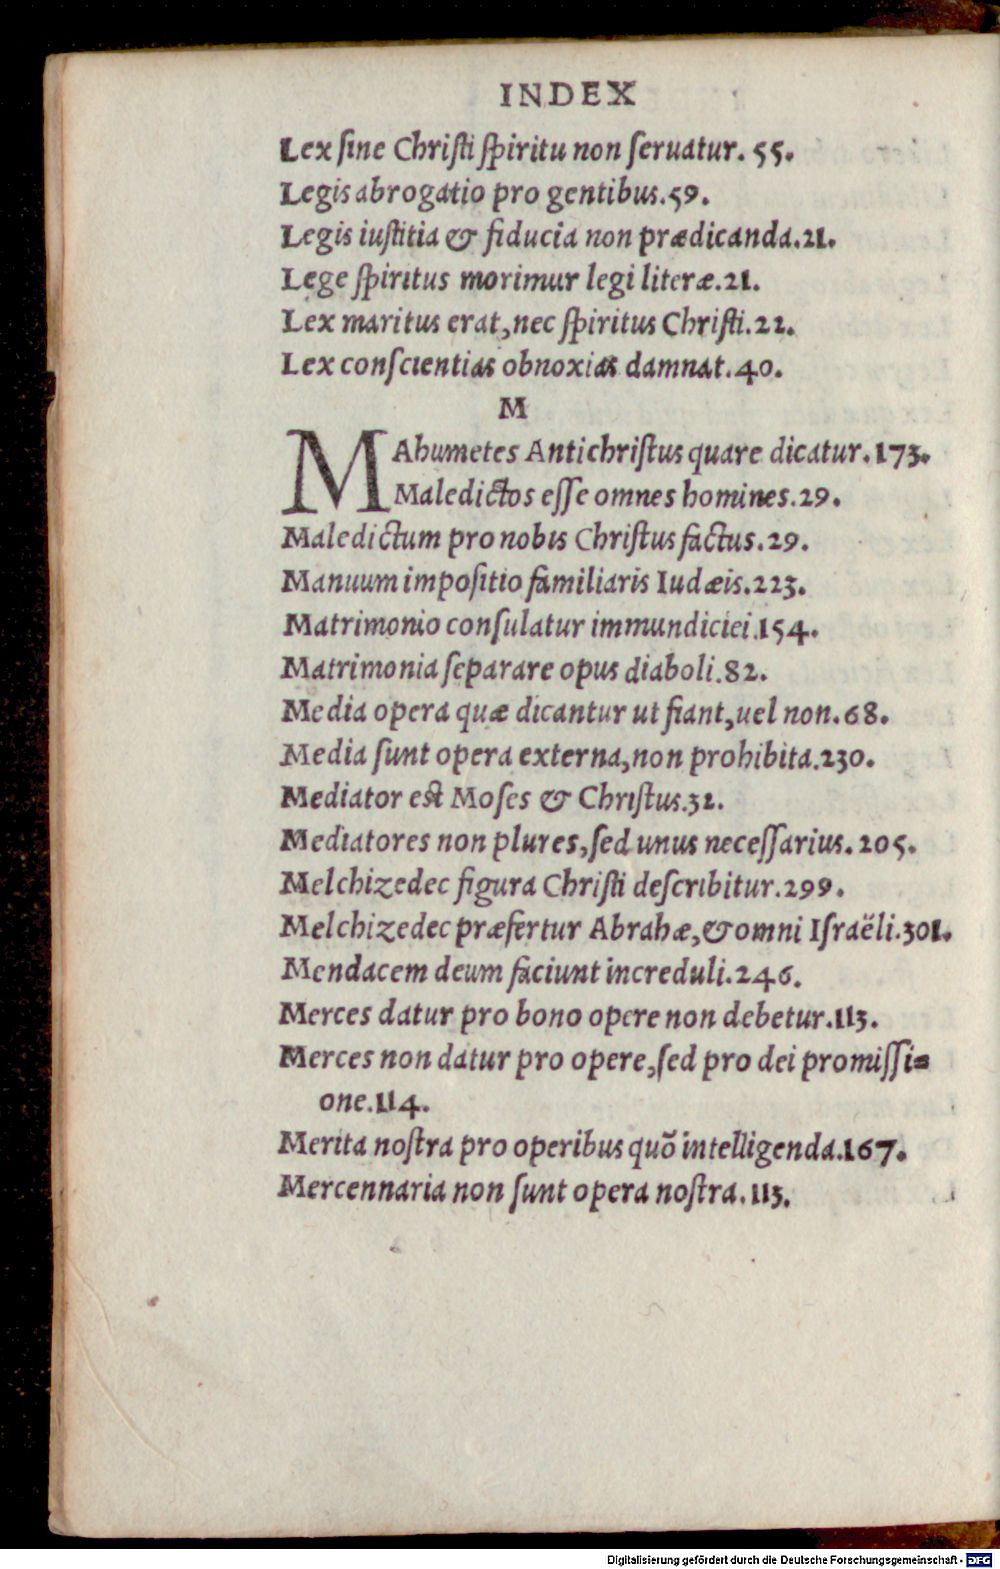 INDEX
Lex ſine Chriſti ſpiritu non ſeruatur. 55.
Legis abrogatio pro gentibus.59.
Legis iuſtitia & fiducia non prædicanda.21.
Lege ſpiritus morimur legi literæ.21.
Lex maritus erat,nec ſpiritus Chriſti.22.
Lex conſcientias obnoxias damnat.40.
M
MAhumetes Antichriſtus quare dicatur.173.
Maledictos eſſe omnes homines.29.
Maledictum pro nobis Chriſtus factus.29.
Manuum impoſitio familiaris Iudæis.223.
Matrimonio conſulatur immundiciei.154.
Matrimonia ſeparare opus diaboli.82.
Media opera quæ dicantur ut fiant,uel non.68.
Media ſunt opera externa,non prohibita.230.
Mediator eſt Moſes & Chriſtus.32.
Mediatores non plures,ſed unus neceſſarius. 205.
Melchizedec figura Chriſti deſcribitur.299.
Melchizedec præfertur Abrahæ,& omni Iſraëli.301.
Mendacem deum faciunt increduli.246.
Merces datur pro bono opere non debetur.113.
Merces non datur pro opere,ſed pro dei promiſſi=
one.114.
Merita noſtra pro operibus quō intelligenda.167.
Mercennaria non ſunt opera noſtra.113.
Digitalisierung gefördert durch die Deutsche Forschungsgemeinschaft - DFG